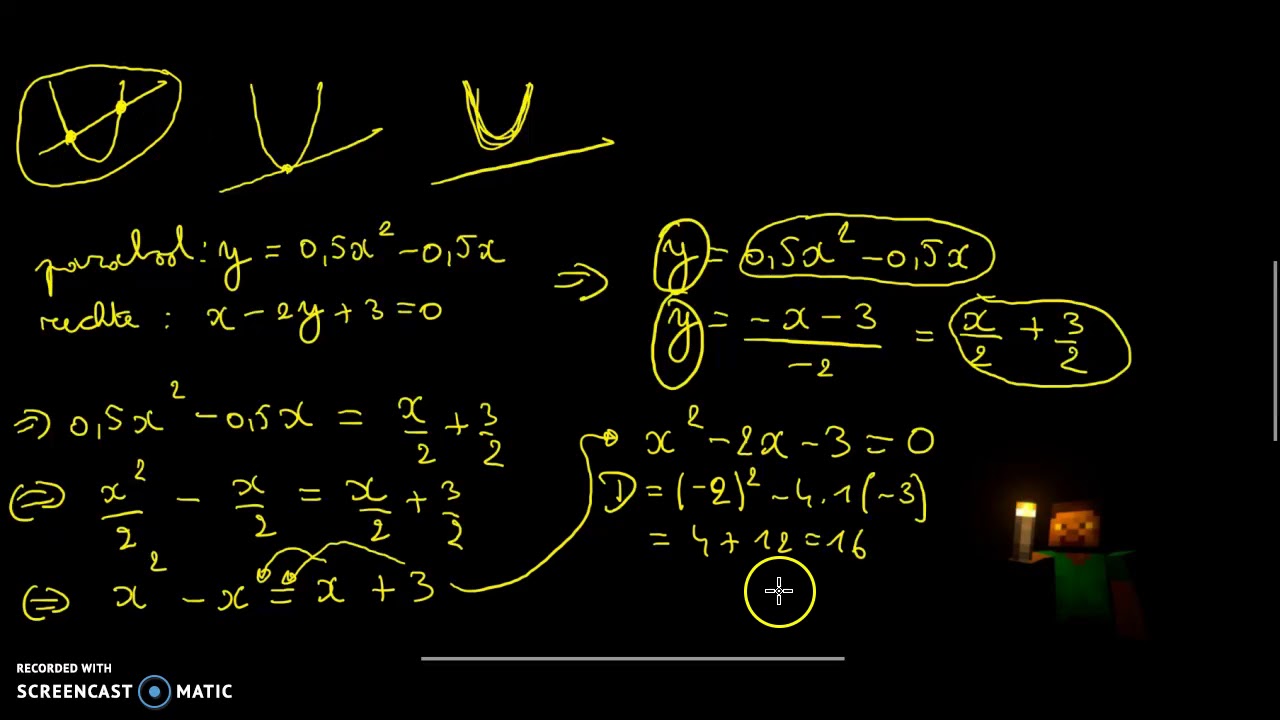 parabool: y = 0,5x² - 0,5x
rechte : x - 2y + 3 = 0
⇒ y = 0,5x² - 0,5x
y = (-x - 3)/(-2) = x/2 + 3/2
⇒ 0,5x² - 0,5x = x/2 + 3/2
⇔ x²/2 - x/2 = x/2 + 3/2
⇔ x² - x = x + 3
x² - 2x - 3 = 0
D = (-2)² - 4.1(-3)
= 4 + 12 = 16
RECORDED WITH
SCREENCAST MATIC